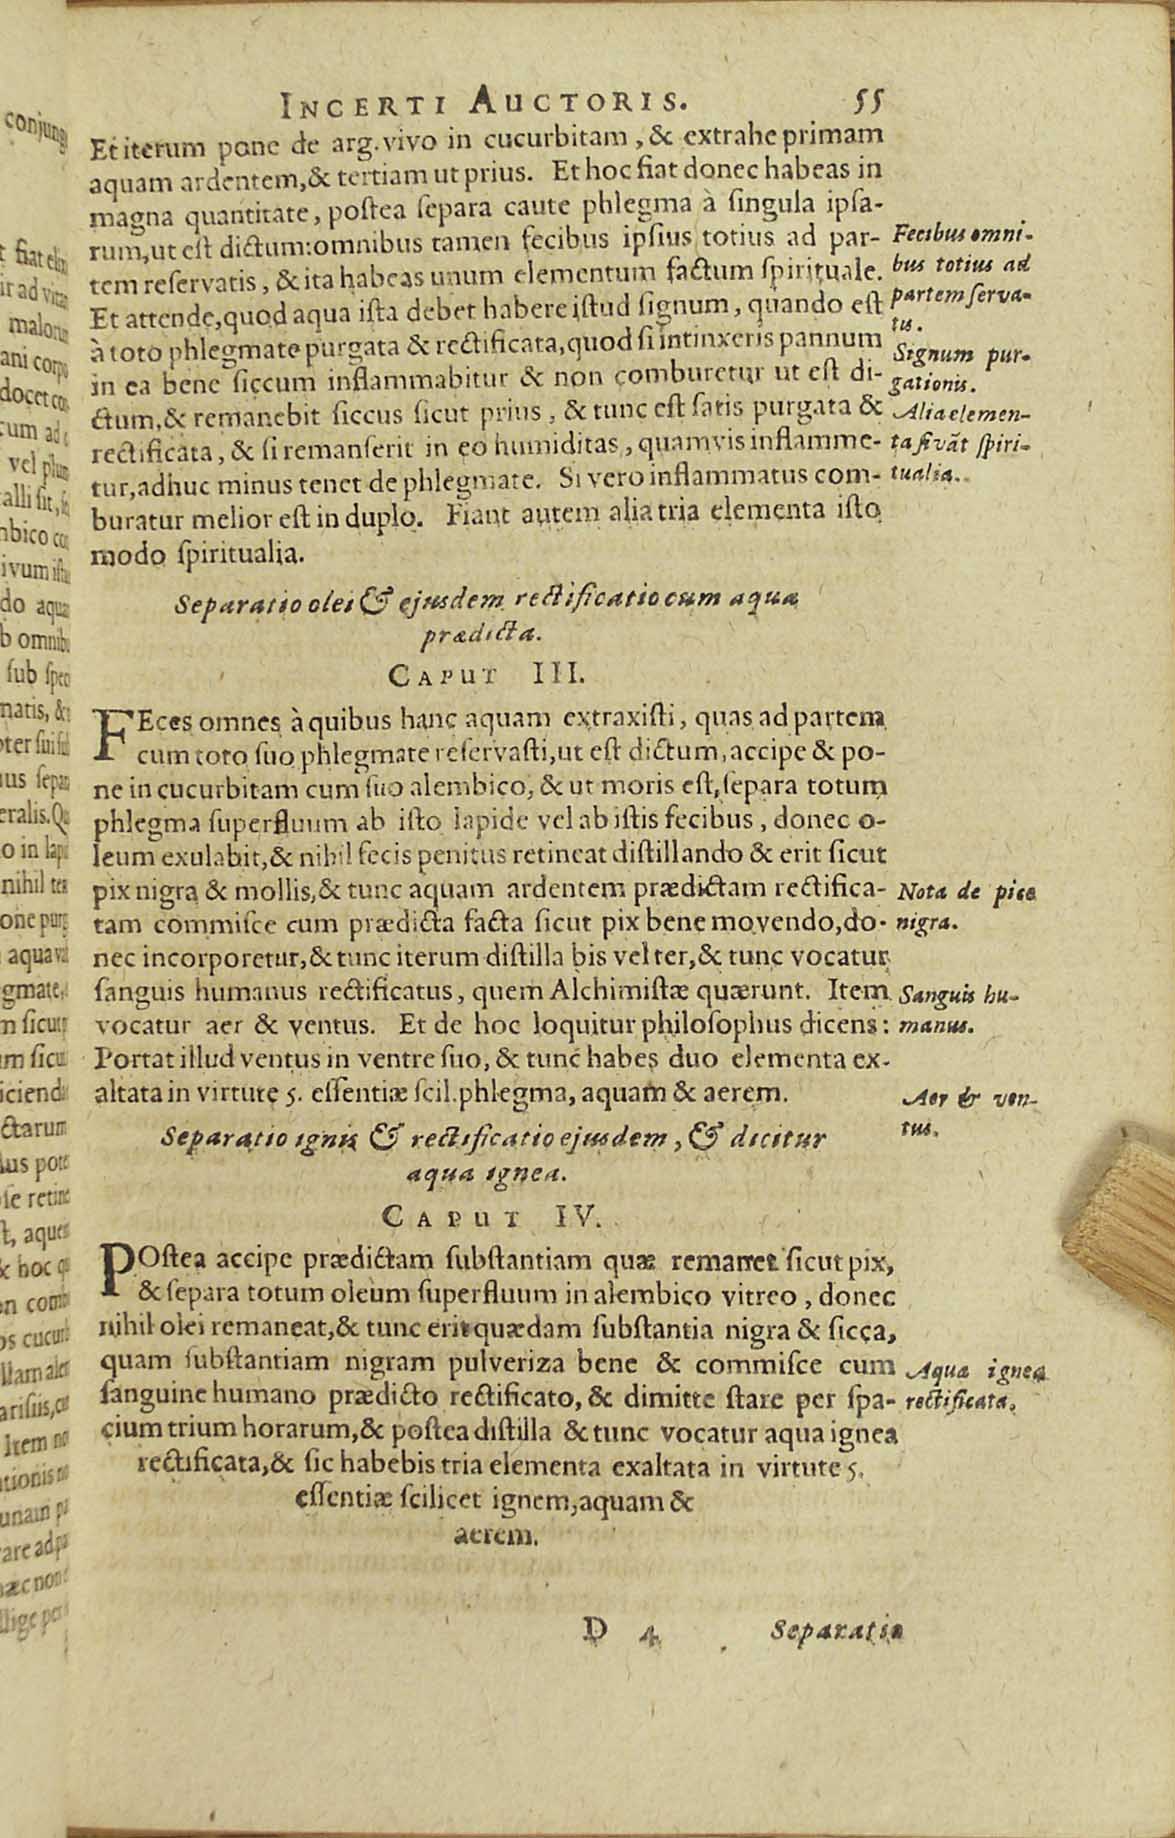 INCERTI AUCTORIS. 55
Et iterum pone de arg. vivo in cucurbitam, & extrahe primam
aquam ardentem, & tertiam ut prius. Et hoc fiat donec habeas in
magna quantitate, postea separa caute phlegma à singula ipsa-
rum, ut est dictum: omnibus tamen fecibus ipsius totius ad par-
tem reservatis, & ita habeas unum elementum factum spirituale.
Et attende, quod aqua ista debet habere istud signum, quando est
à toto phlegmate purgata & rectificata, quod si intinxeris pannum
in ea bene siccum inflammabitur & non comburetur ut est di-
ctum, & remanebit siccus sicut prius, & tunc est satis purgata &
rectificata, & si remanserit in eo humiditas, quamvis inflamme-
tur, adhuc minus tenet de phlegmate. Si vero inflammatus com-
buratur melior est in duplo. Fiant autem alia tria elementa isto
modo spiritualia.
Fecibus omni-
bus totius ad
partem serva-
tis.
Signum pur-
gationis.
Alia elemen-
ta fivãt spiri-
tualia.
Separatio olei & ejusdem rectificatio cum aqua
prædicta.
CAPUT III.
FEces omnes à quibus hanc aquam extraxisti, quas ad partem
cum toto suo phlegmate reservasti, ut est dictum, accipe & po-
ne in cucurbitam cum suo alembico, & ut moris est, separa totum
phlegma superfluum ab isto lapide vel ab istis fecibus, donec o-
leum exulabit, & nihil fecis penitus retineat distillando & erit sicut
pix nigra & mollis, & tunc aquam ardentem prædictam rectifica-
tam commisce cum prædicta facta sicut pix bene movendo, do-
nec incorporetur, & tunc iterum distilla bis vel ter, & tunc vocatur
sanguis humanus rectificatus, quem Alchimistæ quærunt. Item
vocatur aer & ventus. Et de hoc loquitur philosophus dicens:
Portat illud ventus in ventre suo, & tunc habes duo elementa ex-
altata in virtute 5. essentiæ scil. phlegma, aquam & aerem.
Nota de pice
nigra.
Sanguis hu-
manus.
Aer & ven-
tus.
Separatio ignis & rectificatio ejusdem, & dicitur
aqua ignea.
CAPUT IV.
POstea accipe prædictam substantiam quæ remanet sicut pix,
& separa totum oleum superfluum in alembico vitreo, donec
nihil olei remaneat, & tunc erit quædam substantia nigra & sicca,
quam substantiam nigram pulveriza bene & commisce cum
sanguine humano prædicto rectificato, & dimitte stare per spa-
cium trium horarum, & postea distilla & tunc vocatur aqua ignea
rectificata, & sic habebis tria elementa exaltata in virtute 5.
essentiæ scilicet ignem, aquam &
aerem.
Aqua ignea
rectificata.
D 4 Separatio